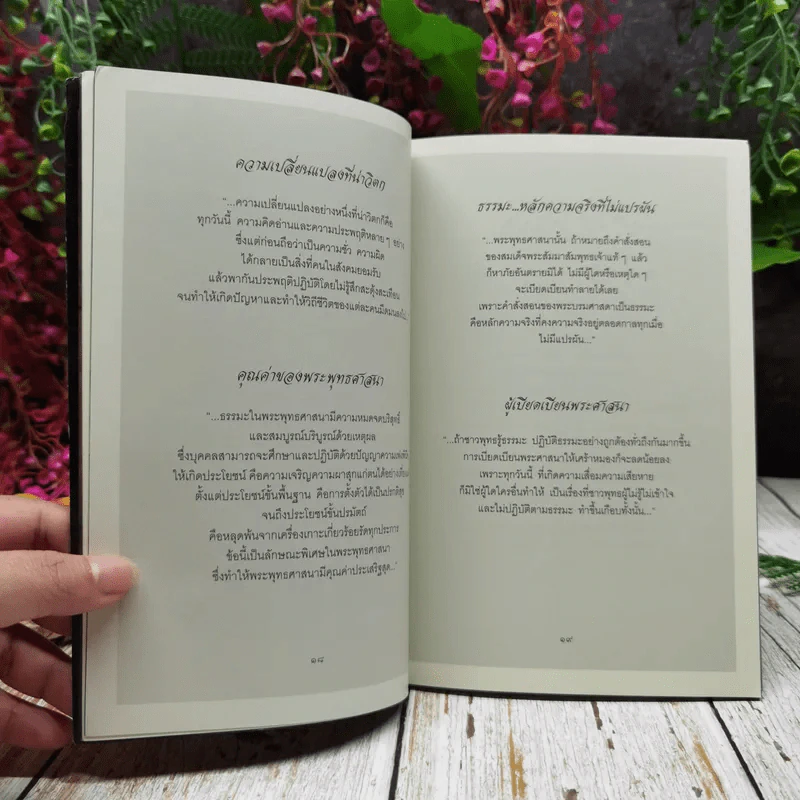 ความเปลี่ยนแปลงที่น่าวิตก
“...ความเปลี่ยนแปลงอย่างหนึ่งที่น่าวิตกก็คือ
ทุกวันนี้ ความคิดอ่านและความประพฤติหลายๆ อย่าง
ซึ่งแต่ก่อนถือว่าเป็นความชั่ว ความผิด
ได้กลายเป็นสิ่งที่คนในสังคมยอมรับ
แล้วพากันประพฤติปฏิบัติโดยไม่รู้สึกสะดุ้งสะเทือน
จนทำให้เกิดปัญหาและทำให้วิถีชีวิตของแต่ละคนมืดมนลง
คุณค่าของพระพุทธศาสนา
“...ธรรมะในพระพุทธศาสนามีความหมดจดบริสุทธิ์
และสมบูรณ์บริบูรณ์ด้วยเหตุผล
ซึ่งบุคคลสามารถจะศึกษาและปฏิบัติด้วยปัญญาความ
ให้เกิดประโยชน์ คือความเจริญความผาสุกแก่ตนได้อย่าง
ตั้งแต่ประโยชน์ขั้นพื้นฐาน คือการตั้งตัวได้เป็นปรกติสุข
จนถึงประโยชน์ขั้นปรมัตถ์
คือหลุดพ้นจากเครื่องเกาะเกี่ยวร้อยรัดทุกประการ
ข้อนี้เป็นลักษณะพิเศษในพระพุทธศาสนา
ซึ่งทำให้พระพุทธศาสนามีคุณค่าประเสริฐสุด...”
๑๘
ธรรมะ...หลักความจริงที่ไม่แปรผัน
“...พระพุทธศาสนานั้น ถ้าหมายถึงคำสั่งสอน
ของสมเด็จพระสัมมาสัมพุทธเจ้าแท้ๆ แล้ว
ก็หาภัยอันตรายมิได้ ไม่มีผู้ใดหรือเหตุใดๆ
จะเบียดเบียนทำลายได้เลย
เพราะคำสั่งสอนของพระบรมศาสดาเป็นธรรมะ
คือหลักความจริงที่คงความจริงอยู่ตลอดกาลทุกเมื่อ
ไม่มีแปรผัน...”
ผู้เบียดเบียนพระศาสนา
“...ถ้าชาวพุทธรู้ธรรมะ ปฏิบัติธรรมะอย่างถูกต้องทั่วถึงกันมากขึ้น
การเบียดเบียนพระศาสนาให้เศร้าหมองก็จะลดน้อยลง
เพราะทุกวันนี้ ที่เกิดความเสื่อมความเสียหาย
ก็มิใช่ผู้ใดใครอื่นทำให้ เป็นเรื่องที่ชาวพุทธผู้ไม่รู้ไม่เข้าใจ
และไม่ปฏิบัติตามธรรมะ ทำขึ้นเกือบทั้งนั้น...”
๑๙